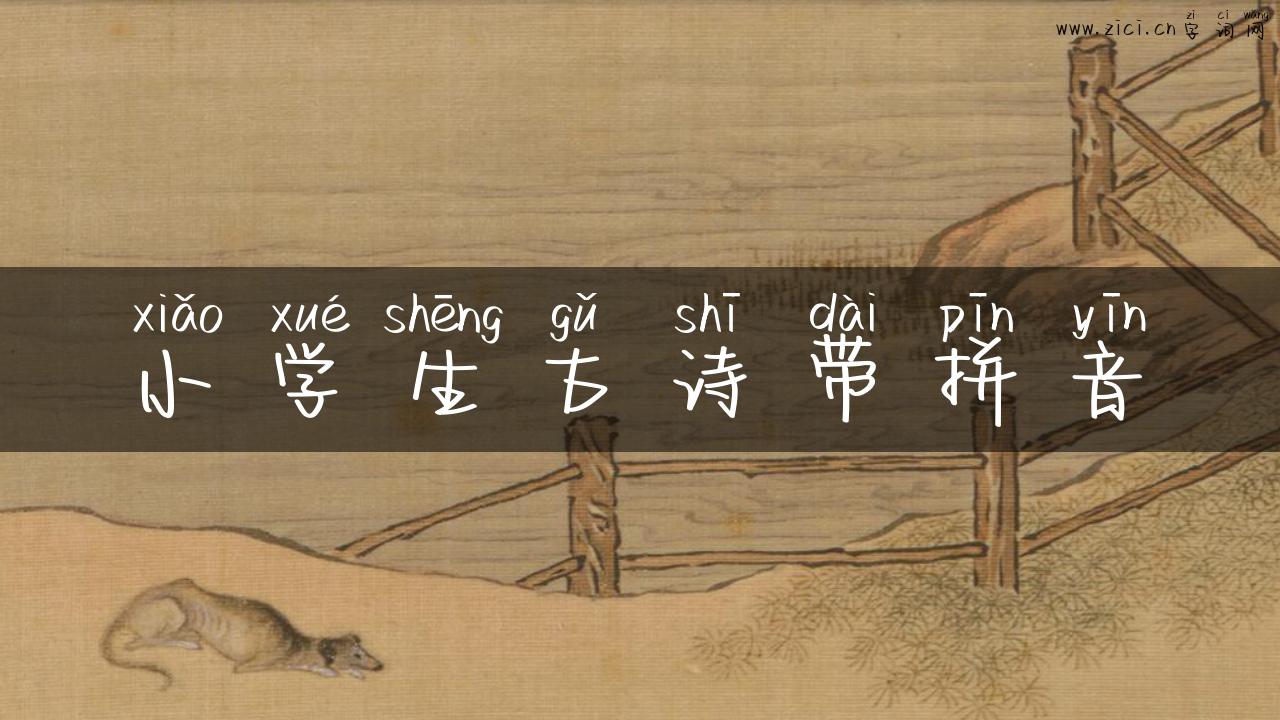 zì cí wǎng
www.zici.cn 字词网
xiǎo xué shēng gǔ shī dài pīn yīn
小学生古诗带拼音